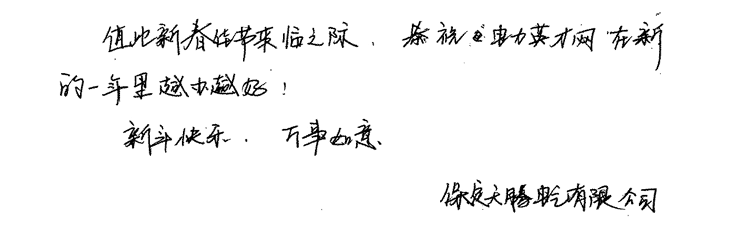 值此新春佳节来临之际，恭祝电力英才网在新
的一年里越办越好！
新年快乐，万事如意。
保定天腾电气有限公司